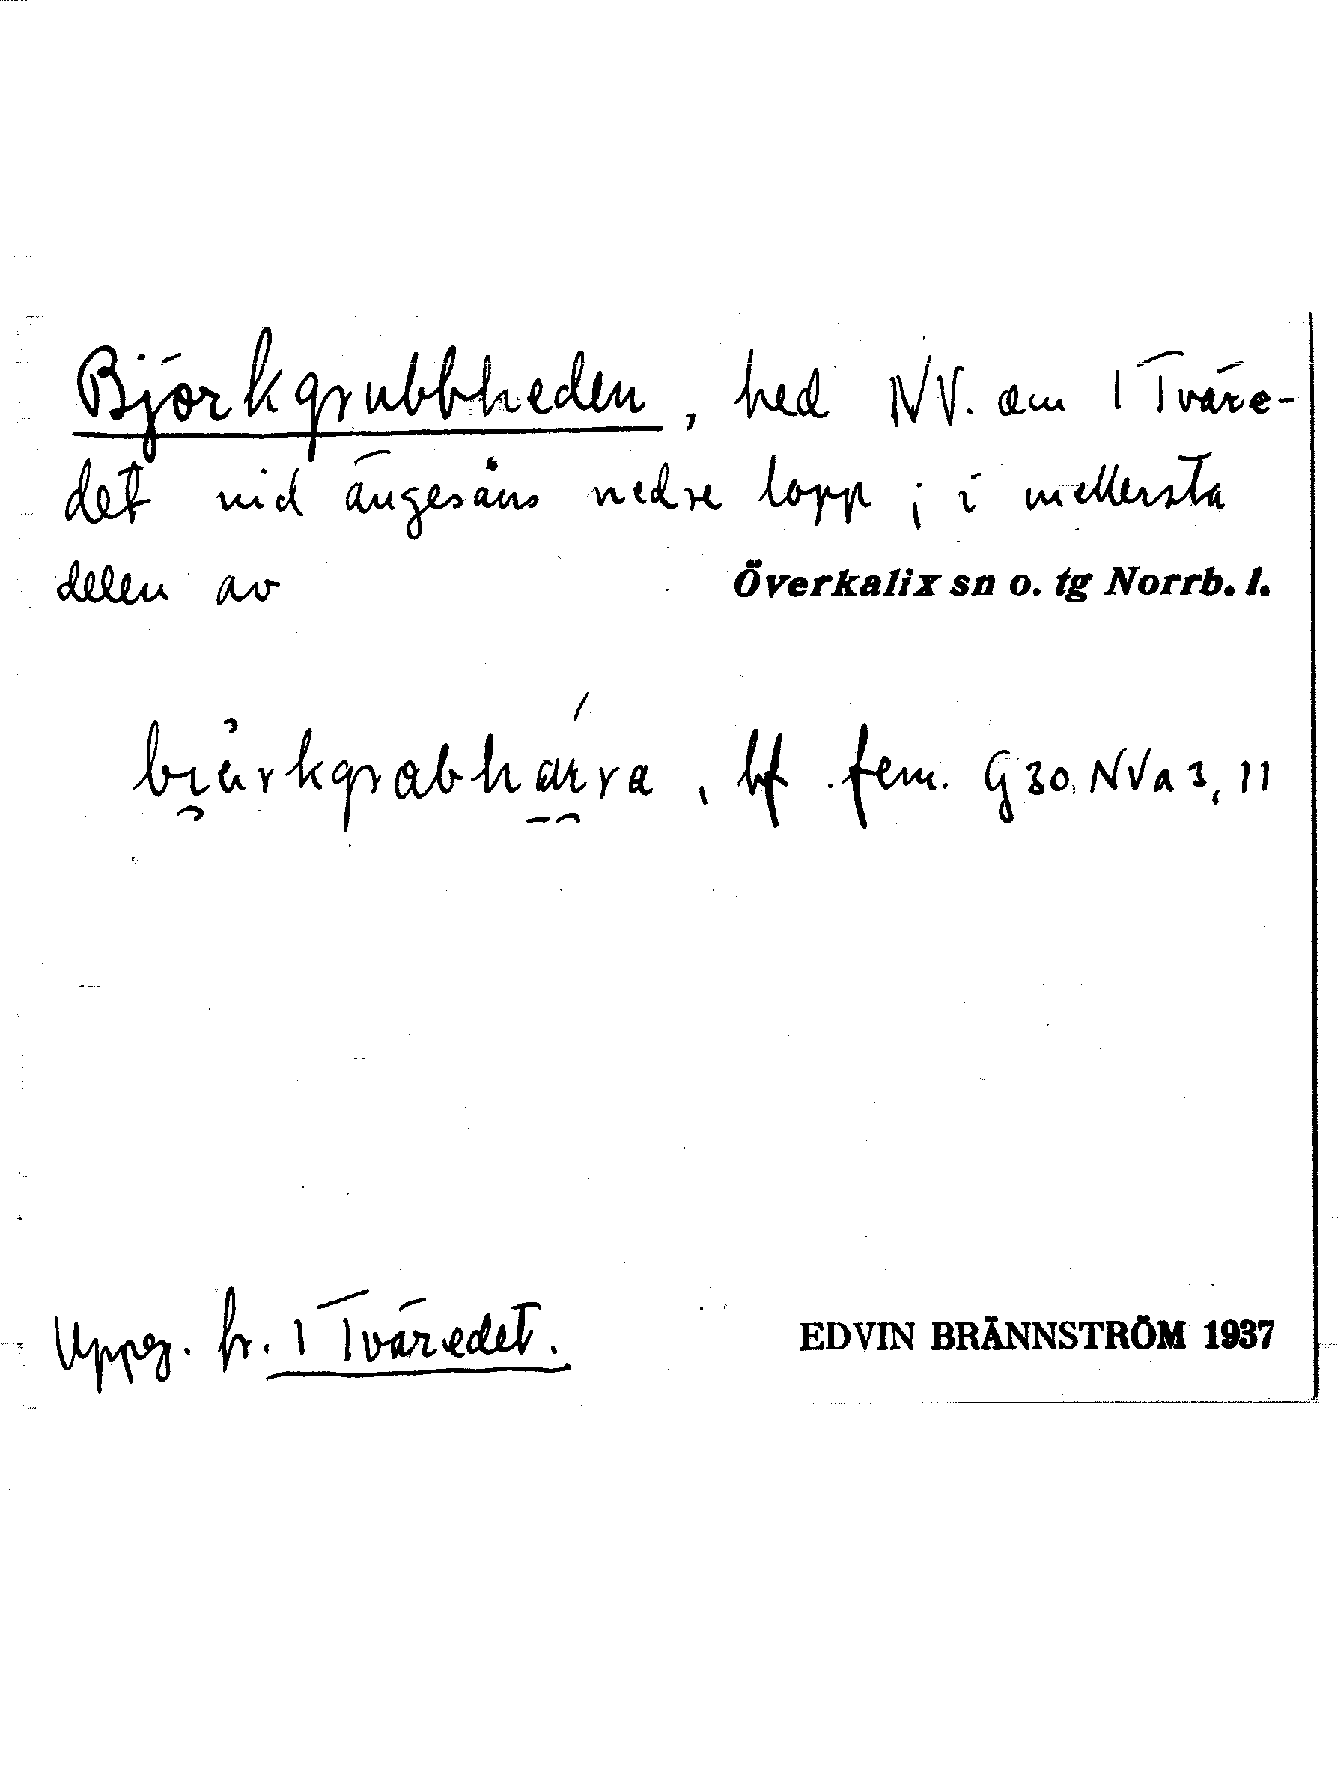 Björkgrubbheden, hed NV. om 1 Tväre-
det vid ängesåns nedre lopp; i mellersta
delen av Överkalix sn o. tg Norrb. l.
bf fem. G 30, NVa 3, 11
Uppg. fr. 1 Tväredet. EDVIN BRÄNNSTRÖM 1937